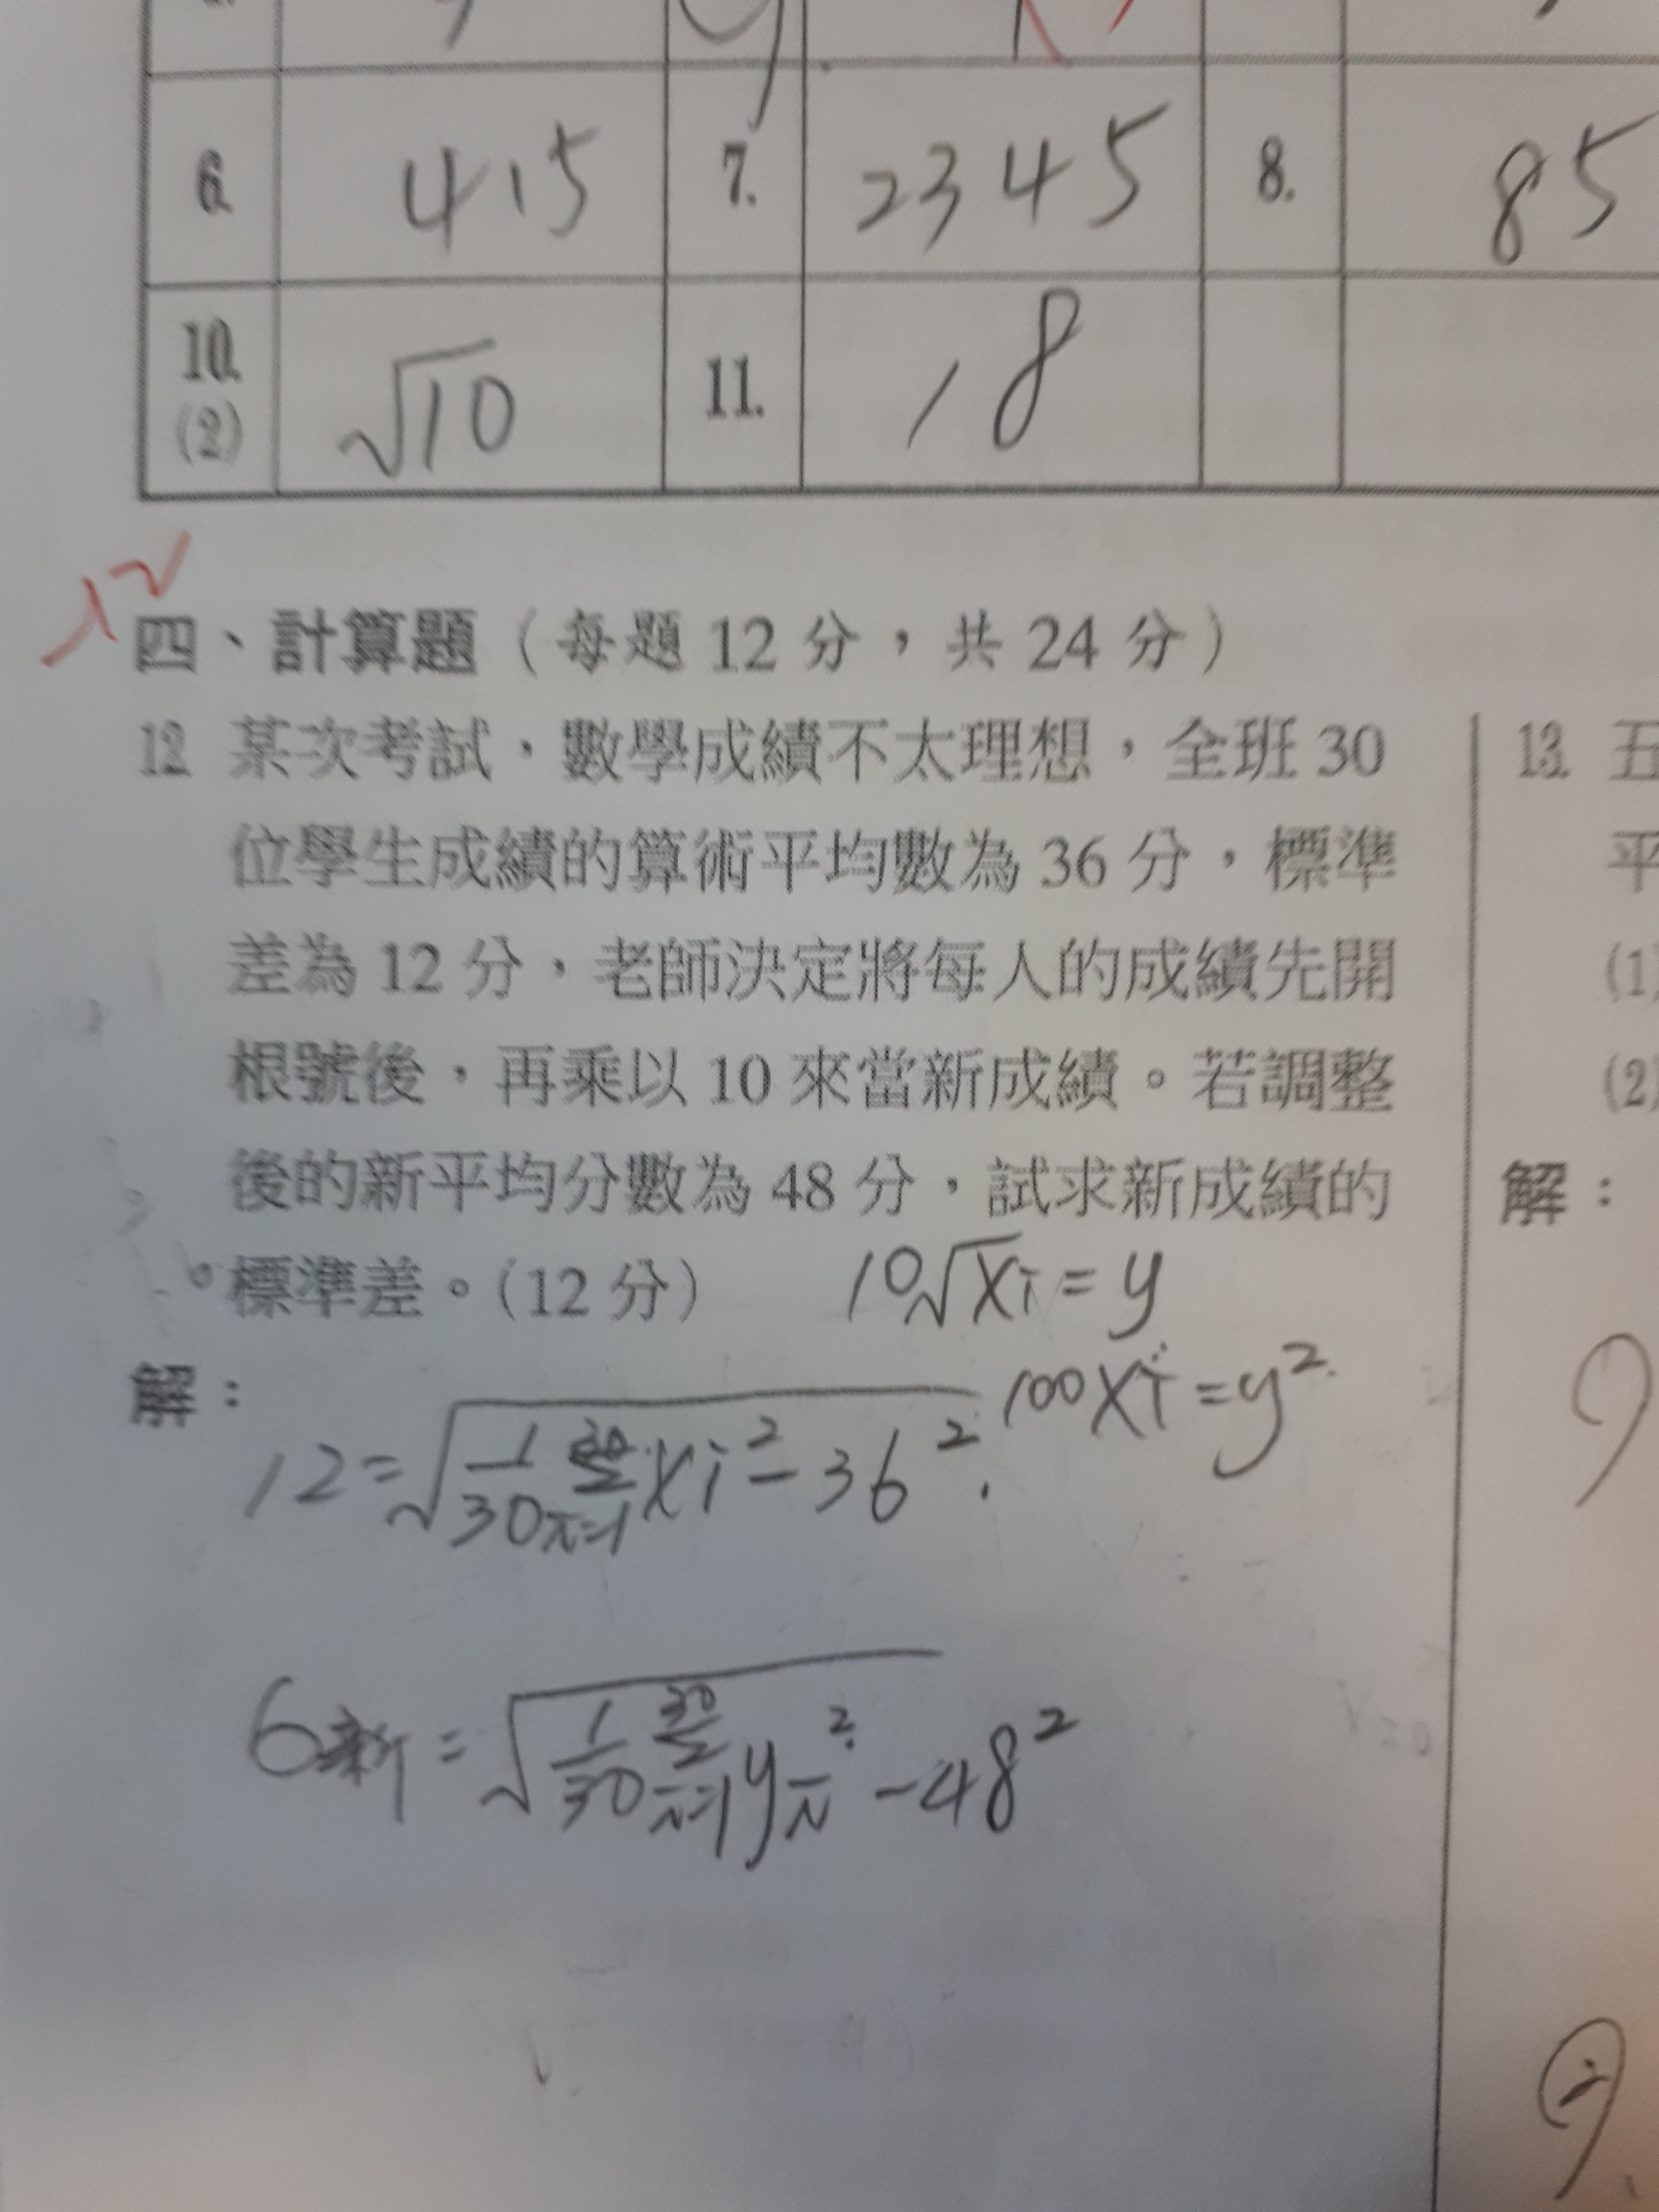 6. 415 7. 2345 8. 85
10. (2) √10 11. 18
12
四、計算題（每題 12 分，共 24 分）
12. 某次考試，數學成績不太理想，全班 30
位學生成績的算術平均數為 36 分，標準
差為 12 分，老師決定將每人的成績先開
根號後，再乘以 10 來當新成績。若調整
後的新平均分數為 48 分，試求新成績的
標準差。(12 分)
10√xi = y
解：
100xi = y²
12 = √(1/30 Σ(i=1→30) xi² - 36²)
6新 = √(1/30 Σ(i=1→30) yi² - 48²)
13. 五
平
(1)
(2)
解：